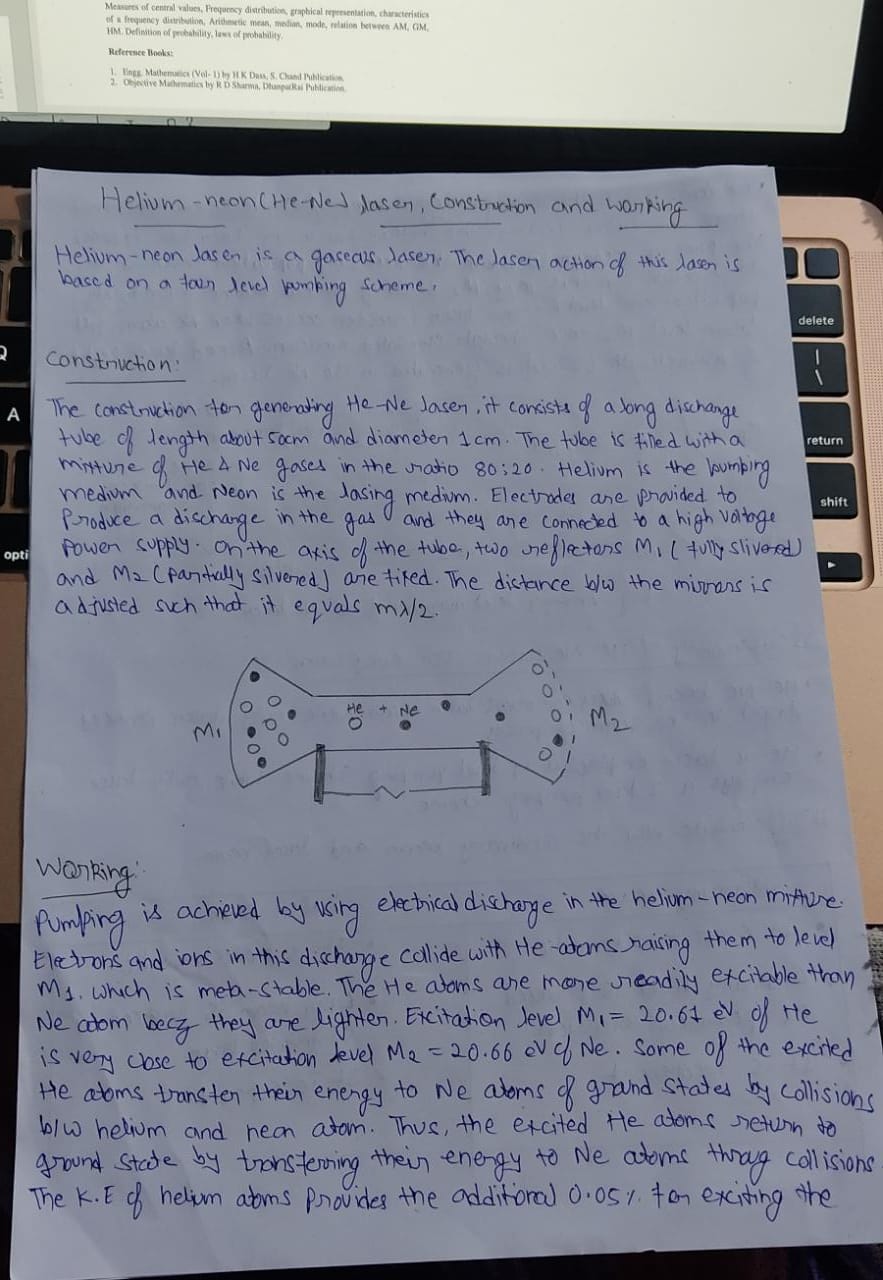 Measures of central values, Frequency distribution, graphical representation, characteristics
of a frequency distribution, Arithmetic mean, median, mode, relation between AM, GM,
HM. Definition of probability, laws of probability.
Reference Books:
1. Engg. Mathematics (Vol- 1) by H K Dass, S. Chand Publication.
2. Objective Mathematics by R D Sharma, DhanpatRai Publication.
Helium-neon (He-Ne) laser, Construction and working
Helium-neon laser is a gaseous laser. The laser action of this laser is
based on a four level pumping scheme.
Construction:
The construction for generating He-Ne laser, it consists of a long discharge
tube of length about 50cm and diameter 1cm. The tube is filled with a
mixture of He & Ne gases in the ratio 80:20. Helium is the pumping
medium and Neon is the lasing medium. Electrodes are provided to
Produce a discharge in the gas and they are connected to a high voltage
Power supply. On the axis of the tube, two reflectors M1 (fully slivered)
and M2 (partially silvered) are fixed. The distance b/w the mirrors is
adjusted such that it equals mλ/2.
M1 He + Ne M2
Working:
Pumping is achieved by using electrical discharge in the helium-neon mixture.
Electrons and ions in this discharge collide with He-atoms raising them to level
M1, which is meta-stable. The He atoms are more readily excitable than
Ne atom becz they are lighter. Excitation level M1 = 20.61 eV of He
is very close to excitation level M2 = 20.66 eV of Ne. Some of the excited
He atoms transfer their energy to Ne atoms of ground states by collisions
b/w helium and neon atom. Thus, the excited He atoms return to
ground state by transferring their energy to Ne atoms throug collisions
The K.E of helium atoms provides the additional 0.05% for exciting the
delete
|
\
return
shift
Q
A
opti